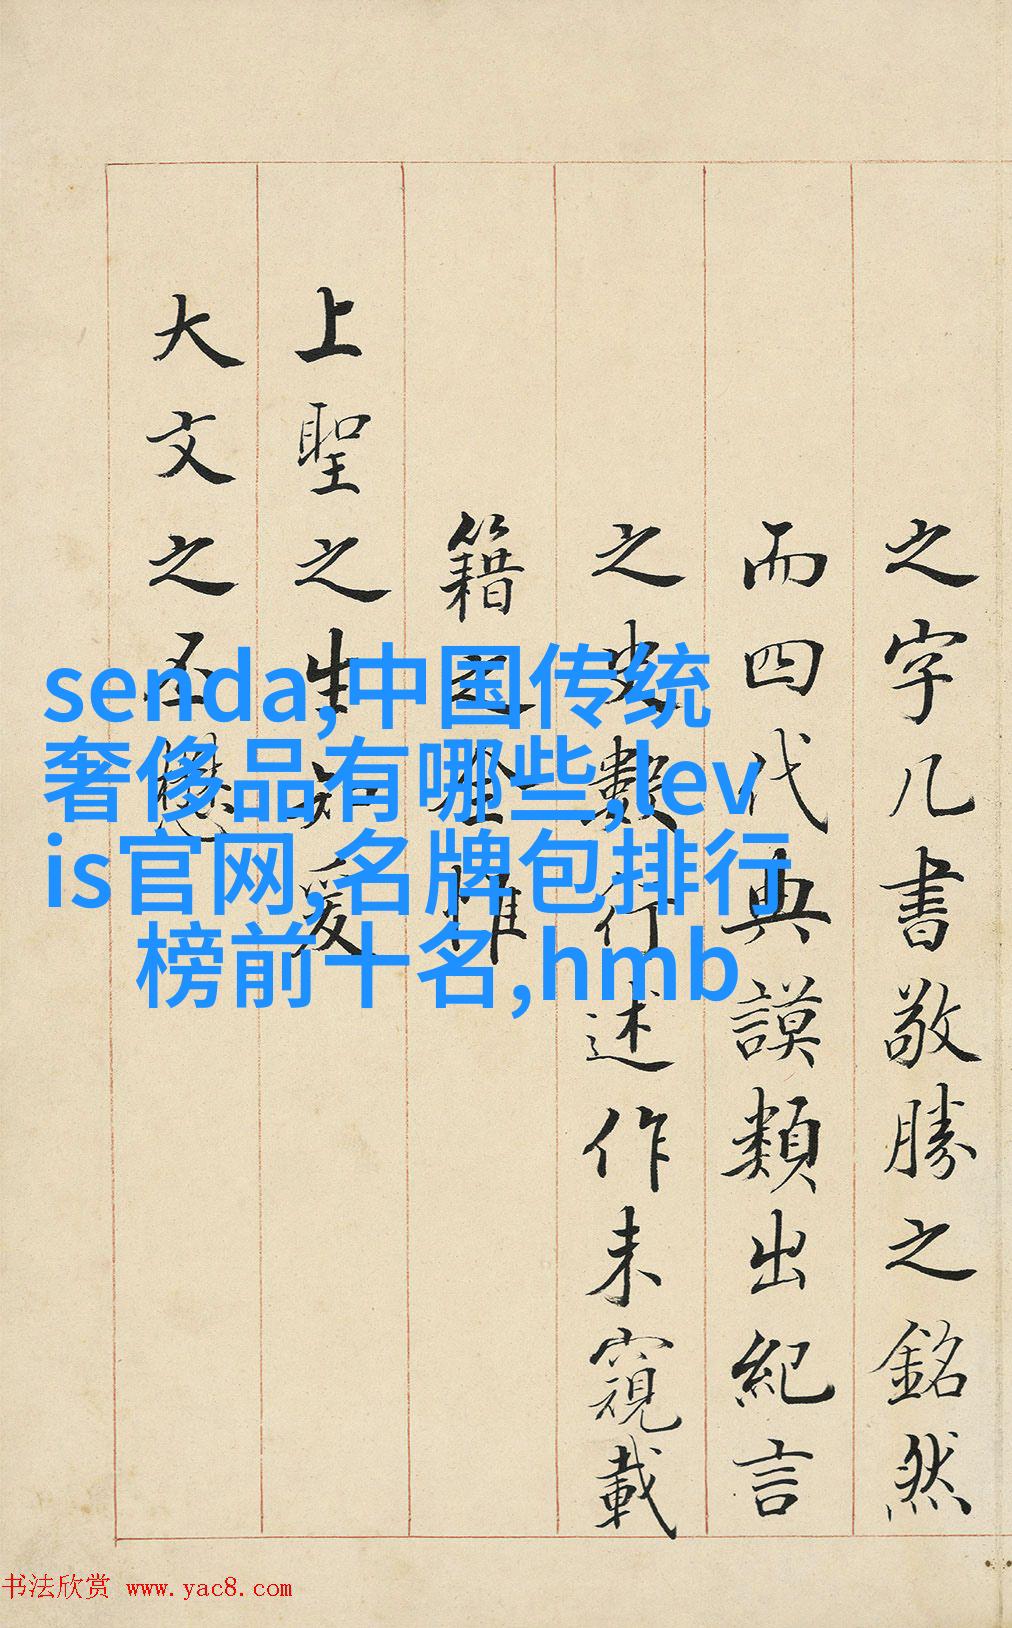 之字几書敬勝之銘然
而四代典謨類出紀言
之史數行述作未窺載
籍之全惟
上聖之生知爰
大文之丕懋
senda,中国传统
奢侈品有哪些,lev
is官网,名牌包排行
榜前十名,hmb
书法欣赏 www.yac8.com